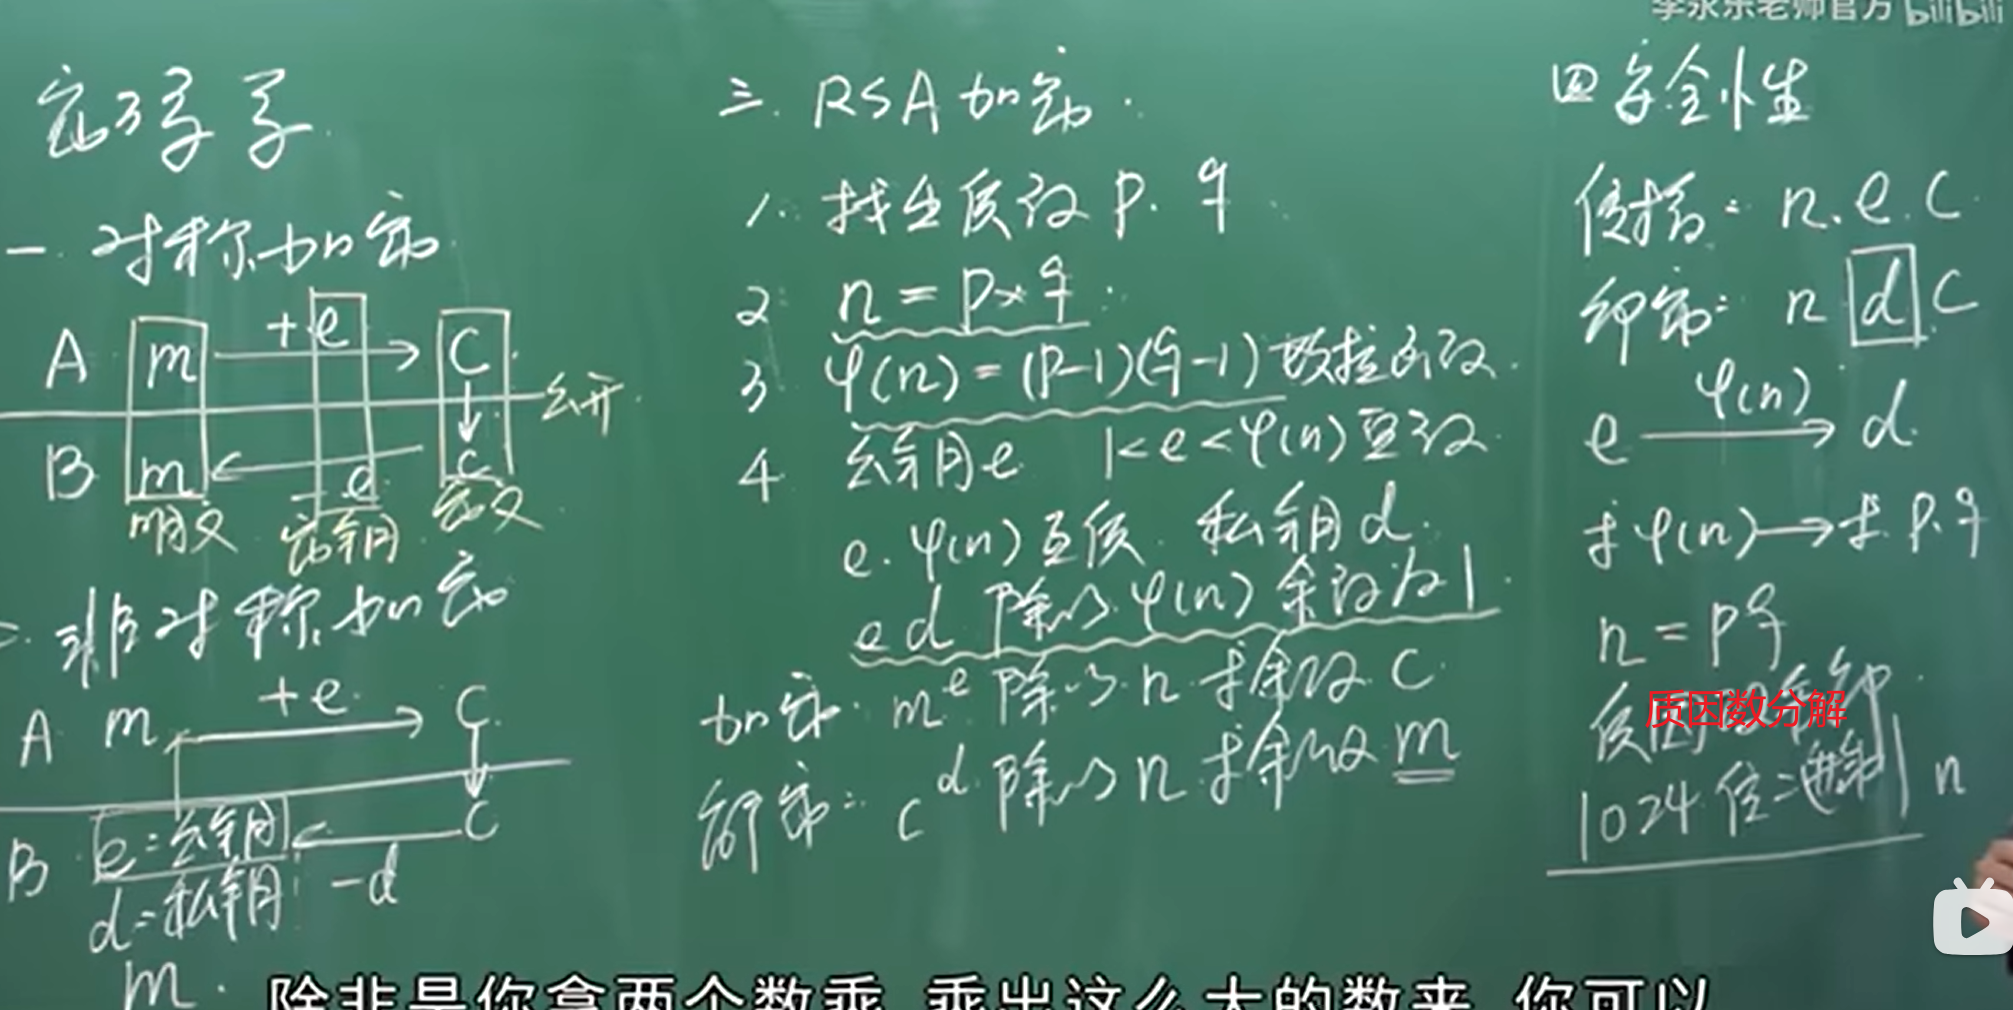 李永乐老师官方 bilibili
密码学
一. 对称加密
A m +e C
公开
B m -e C
明文 密钥 密文
二. 非对称加密
A m +e C
B e=公钥 C
d=私钥 -d
m.
三. RSA 加密.
1. 找出质数 p. q
2 n = p×q.
3 φ(n) = (p-1)(q-1) 欧拉函数.
4 公钥e 1<e<φ(n) 整数
e. φ(n) 互质 私钥d.
ed 除以 φ(n) 余数为1.
加密. m^e 除以 n 求余数 C
解密: c^d 除以 n 求余数 m
四 安全性
传播: n. e. C.
解密: n d C
e φ(n) d.
求φ(n)→求 p. q
n = pq
质因数分解
质因数分解
1024 位二进制 n
除非是你拿两个数乘 乘出这么大的数来 你可以